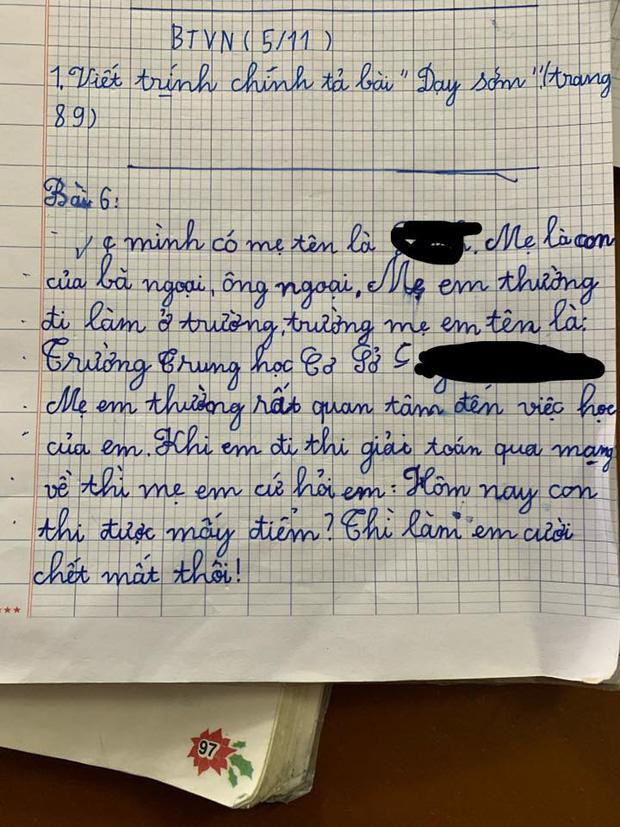 BTVN (5/11)
1. Viết trính chính tả bài "Dạy sớm" (trang
89)
Bài 6:
mình có mẹ tên là . Mẹ là con
của bà ngoại, ông ngoại. Mẹ em thường
đi làm ở trường, trường mẹ em tên là:
Trường Trung học Cơ Sở
Mẹ em thường rất quan tâm đến việc học
của em. Khi em đi thi giải toán qua mạng
về thì mẹ em cứ hỏi em: Hôm nay con
thi được mấy điểm? Thì làm em cười
chết mất thôi!
97